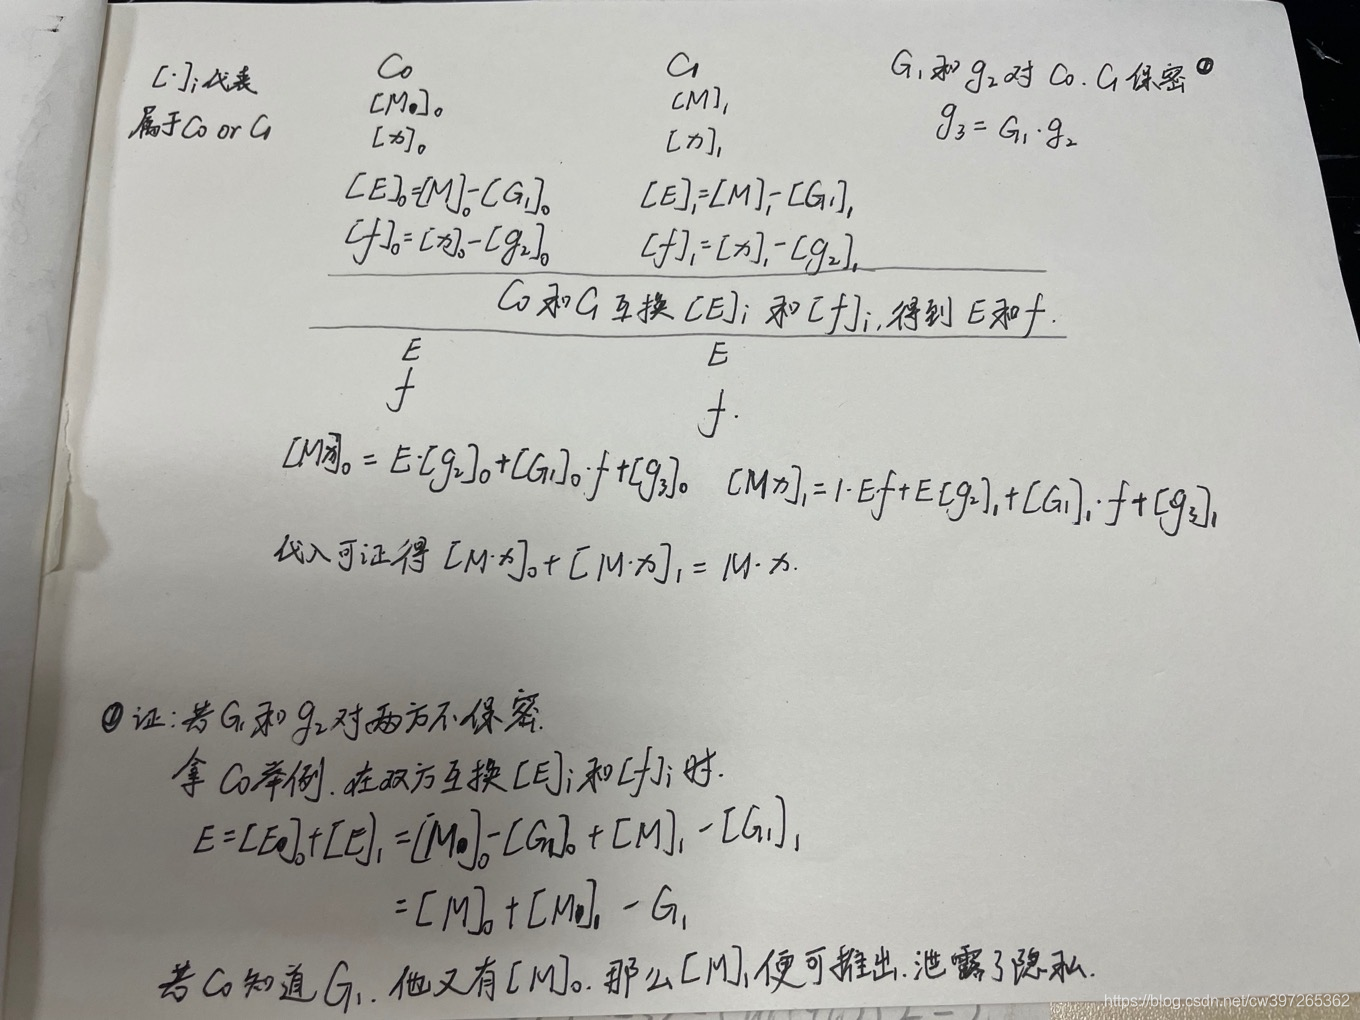 [·]i代表
属于C0 or C1
C0
[M]0
[x]0
[E]0=[M]0-[G1]0
[f]0=[x]0-[g2]0
C1
[M]1
[x]1
[E]1=[M]1-[G1]1
[f]1=[x]1-[g2]1
G1和g2对C0.C1保密①
g3=G1·g2
C0和C1互换[E]i和[f]i,得到E和f.
E
f
E
f.
[Mx]0=E·[g2]0+[G1]0·f+[g3]0
[Mx]1=1·Ef+E[g2]1+[G1]1·f+[g3]1
代入可证得[M·x]0+[M·x]1=M·x.
①证:若G1和g2对两方不保密.
拿C0举例.在双方互换[E]i和[f]i时.
E=[E]0+[E]1=[M]0-[G1]0+[M]1-[G1]1
=[M]0+[M]1-G1
若C0知道G1.他又有[M]0.那么[M]1便可推出.泄露了隐私.
https://blog.csdn.net/cw397265362